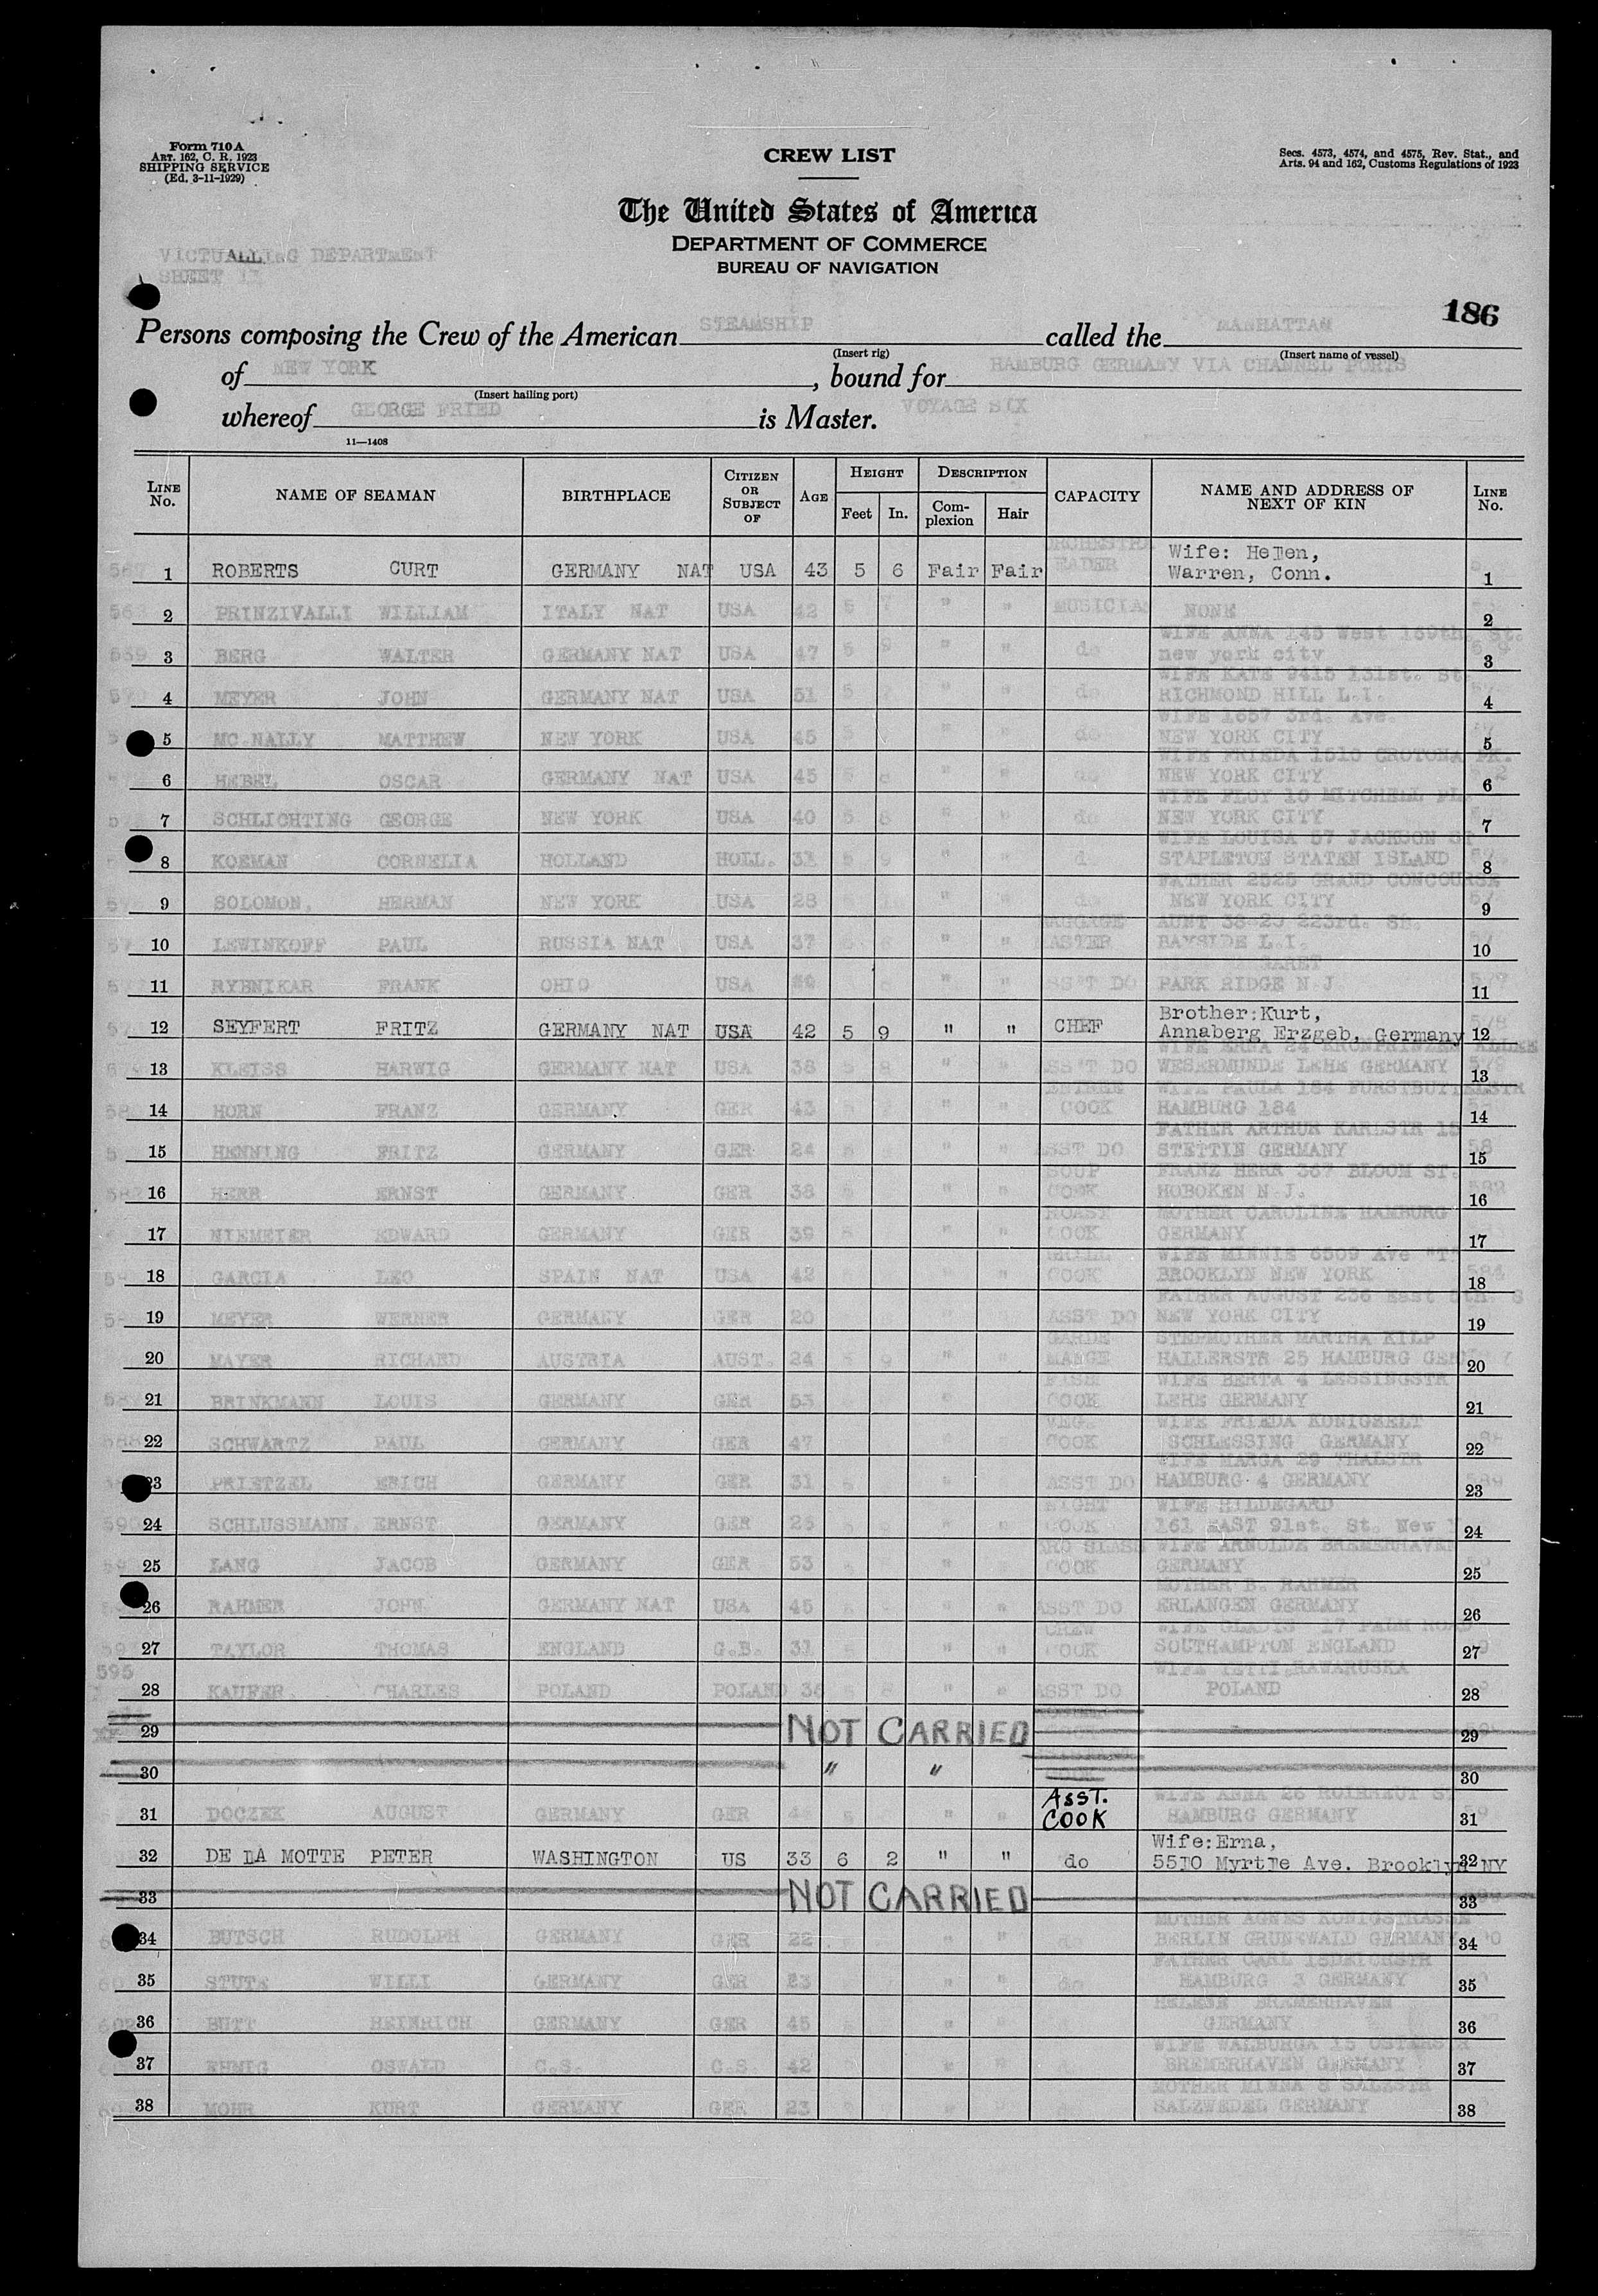 Form 710A
ART. 162, C. R. 1923
SHIPPING SERVICE
(Ed. 3-11-1929)
CREW LIST
Secs. 4573, 4574, and 4575, Rev. Stat., and
Arts. 94 and 162, Customs Regulations of 1923
The United States of America
DEPARTMENT OF COMMERCE
BUREAU OF NAVIGATION
VICTUALLING DEPARTMENT
SHEET 13
186
Persons composing the Crew of the American STEAMSHIP called the MANHATTAN
(Insert rig) (Insert name of vessel)
of NEW YORK, bound for HAMBURG GERMANY VIA CHANNEL PORTS
(Insert hailing port)
whereof GEORGE FRIED is Master. VOYAGE SIX
11—1408
LINE No. NAME OF SEAMAN BIRTHPLACE CITIZEN OR SUBJECT OF AGE HEIGHT Feet In. DESCRIPTION Complexion Hair CAPACITY NAME AND ADDRESS OF NEXT OF KIN LINE No.
1 ROBERTS CURT GERMANY NAT USA 43 5 6 Fair Fair ORCHESTRA EADER Wife: Helen, Warren, Conn. 1
2 PRINZIVALLI WILLIAM ITALY NAT USA 42 5 7 " " MUSICIAN NONE 2
3 BERG WALTER GERMANY NAT USA 47 5 9 " " do WIFE ANNA 145 West 169th. St. new york city 3
4 MEYER JOHN GERMANY NAT USA 51 5 " " do WIFE KATE 9415 131st. St RICHMOND HILL L.I. 4
5 MC NALLY MATTHEW NEW YORK USA 45 5 " " do WIFE 1657 3rd. Ave. NEW YORK CITY 5
6 HEBEL OSCAR GERMANY NAT USA 45 5 8 " " do WIFE FRIEDA 1510 CROTONA PK. NEW YORK CITY 6
7 SCHLICHTING GEORGE NEW YORK USA 40 5 8 " " do WIFE FLOY 10 MITCHELL PL NEW YORK CITY 7
8 KOEMAN CORNELIA HOLLAND HOLL. 31 5 9 " " do WIFE LOUISA 57 JACKSON ST STAPLETON STATEN ISLAND 8
9 SOLOMON, HERMAN NEW YORK USA 28 5 10 " " do FATHER 2525 GRAND CONCOURSE NEW YORK CITY 9
10 LEWINKOFF PAUL RUSSIA NAT USA 37 5 6 " " BAGGAGE MASTER AUNT 38-20 223rd. St. BAYSIDE L.I. 10
11 RYBNIKAR FRANK OHIO USA " " SS'T DO PARK RIDGE N J 11
12 SEYFERT FRITZ GERMANY NAT USA 42 5 9 " " CHEF Brother:Kurt, Annaberg Erzgeb, Germany 12
13 KLEISS HARWIG GERMANY NAT USA 38 5 8 " " SS'T DO WIFE ERNA 24 KRONPRINZEN ALLEE WESERMUNDE LEHE GERMANY 13
14 HORN FRANZ GERMANY GER 43 5 7 " " ENTREE COOK WIFE PAULA 184 FURSTBUTTELSTR HAMBURG 184 14
15 HENNING FRITZ GERMANY GER 24 5 " " ASST DO FATHER ARTHUR KARLSTR 15 STETTIN GERMANY 15
16 HERR ERNST GERMANY GER 38 5 " " SOUP COOK FRANZ HERR 367 BLOOM ST. HOBOKEN N.J. 16
17 NIEMEIER EDWARD GERMANY GER 39 5 " " ROAST COOK MOTHER CAROLINE HAMBURG GERMANY 17
18 GARCIA LEO SPAIN NAT USA 42 " " GRILL COOK WIFE MINNIE 6509 Ave "T" BROOKLYN NEW YORK 18
19 MEYER WERNER GERMANY GER 20 " " ASST DO FATHER AUGUST 236 East 5th. S NEW YORK CITY 19
20 MAYER RICHARD AUSTRIA AUST. 24 5 9 " " GARDE MAUGE STEPMOTHER MARTHA KILP HALLERSTR 25 HAMBURG GERMANY 20
21 BRINKMANN LOUIS GERMANY GER 53 " " FISH COOK WIFE BERTA 4 LESSINGSTR LEHE GERMANY 21
22 SCHWARTZ PAUL GERMANY GER 47 " " VEG. COOK WIFE FRIEDA KONIGSELT SCHLESSING GERMANY 22
23 PRIETZEL ERICH GERMANY GER 31 5 " " ASST DO WIFE MARGA 29 THALSTR HAMBURG 4 GERMANY 23
24 SCHLUSSMANN. ERNST GERMANY GER 25 5 " " NIGHT COOK WIFE HILDEGARD 161 EAST 91st. St. New Y 24
25 LANG JACOB GERMANY GER 53 " " COOK WIFE ARNOLDE BREMERHAVEN GERMANY 25
26 RAHMER JOHN GERMANY NAT USA 45 " " ASST DO MOTHER B. RAHMER ERLANGEN GERMANY 26
27 TAYLOR THOMAS ENGLAND G.B. 31 5 " " CREW COOK WIFE GLADIS 17 PALM ROAD SOUTHAMPTON ENGLAND 27
595
28 KAUFER CHARLES POLAND POLAND 36 8 " " ASST DO POLAND 28
29 NOT CARRIED 29
30 " " 30
31 DOCZEK AUGUST GERMANY GER " " ASST. COOK HAMBURG GERMANY 31
32 DE LA MOTTE PETER WASHINGTON US 33 6 2 " " do Wife:Erna, 5510 Myrtle Ave. Brooklyn NY 32
33 NOT CARRIED 33
34 BUTSCH RUDOLPH GERMANY GER 22 " " do MOTHER AGNES KONIGSTRASSE BERLIN GRUNEWALD GERMANY 34
35 STUTE WILLI GERMANY GER 23 " " do FATHER CARL HAMBURG 3 GERMANY 35
36 BUTT HEINRICH GERMANY GER 45 " " HELENE BRAMERHAVEN GERMANY 36
37 EHMIG OSWALD C.S. C.S. 42 " " WIFE WALBURGA 15 OSTERSTR BREMERHAVEN GERMANY 37
38 MOHR KURT GERMANY GER 23 " " MOTHER MINNA 8 SALZSTR SALZWEDEL GERMANY 38